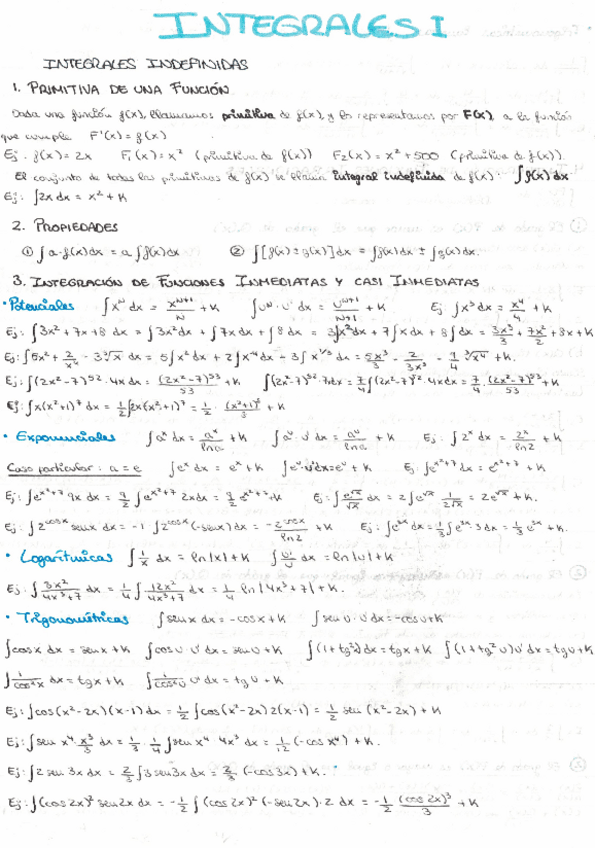 INTEGRALES I
INTEGRALES INDEFINIDAS
1. PRIMITIVA DE UNA FUNCIÓN
Dada una función f(x), llamamos primitiva de f(x), y la representamos por F(x), a la función
que cumple F'(x) = f(x)
Ej: f(x) = 2x F₁(x) = x² (primitiva de f(x)) F₂(x) = x² + 500 (primitiva de f(x)).
El conjunto de todas las primitivas de f(x) se llama integral indefinida de f(x): ∫f(x) dx
Ej: ∫2x dx = x² + K
2. PROPIEDADES
① ∫a·f(x)dx = a ∫f(x)dx ② ∫[f(x) ± g(x)]dx = ∫f(x)dx ± ∫g(x)dx.
3. INTEGRACIÓN DE FUNCIONES INMEDIATAS Y CASI INMEDIATAS
• Potenciales ∫xᴺ dx = xᴺ⁺¹/N + K ∫Uᴺ·U' dx = Uᴺ⁺¹/N+1 + K Ej: ∫x³ dx = x⁴/4 + K
Ej: ∫3x² + 7x + 8 dx = ∫3x²dx + ∫7x dx + ∫8 dx = 3∫x²dx + 7∫x dx + 8∫dx = 3x³/3 + 7x²/2 + 8x + K
Ej: ∫5x² + 2/x⁴ - 3∛x dx = 5∫x² dx + 2∫x⁻⁴ dx - 3∫x^1/3 dx = 5x³/3 - 2/3x³ - 9/4 ∛x⁴ + K.
Ej: ∫(2x²-7)⁵²·4x dx = (2x²-7)⁵³/53 + K ∫(2x²-7)⁵²·7dx = 7/4 ∫(2x²-7)⁵²·4x dx = 7/4 · (2x²-7)⁵³/53 + K
Ej: ∫x(x²+1)⁷ dx = 1/2 ∫2x(x²+1)⁷ = 1/2 · (x²+1)⁸/8 + K
• Exponenciales ∫aˣ dx = aˣ/lna + K ∫aᵁ·U' dx = aᵁ/lna + K Ej: ∫2ˣ dx = 2ˣ/ln2 + K
Caso particular: a = e ∫eˣ dx = eˣ + K ∫eᵁ·U'dx = eᵁ + K Ej: ∫e^x+7 dx = e^x+7 + K
Ej: ∫e^x²+7 9x dx = 9/2 ∫e^x²+7 2x dx = 9/2 e^x²+7 + K Ej: ∫e^√x/√x dx = 2∫e^√x 1/2√x dx = 2e^√x + K.
Ej: ∫2^cosx senx dx = -1·∫2^cosx (-senx) dx = -2^cosx/ln2 + K Ej: ∫e³ˣ dx = 1/3∫e³ˣ 3 dx = 1/3 e³ˣ + K.
• Logarítmicas ∫1/x dx = ln|x| + K ∫U'/U dx = ln|U| + K
Ej: ∫3x²/4x³+7 dx = 1/4 ∫12x²/4x³+7 dx = 1/4 ln|4x³+7| + K.
• Trigonométricas ∫senx dx = -cosx + K ∫senU·U' dx = -cosU + K
∫cosx dx = senx + K ∫cosU·U' dx = senU + K ∫(1+tg²x)dx = tgx + K ∫(1+tg²U)U' dx = tgU + K
∫1/cos²x dx = tgx + K ∫1/cos²U U' dx = tgU + K
Ej: ∫cos(x²-2x)(x-1) dx = 1/2 ∫cos(x²-2x) 2(x-1) = 1/2 sen(x²-2x) + K
Ej: ∫sen x⁴ x³/3 dx = 1/3 · 1/4 ∫sen x⁴ · 4x³ dx = 1/12 (-cos x⁴) + K.
Ej: ∫2 sen 3x dx = 2/3 ∫3 sen3x dx = 2/3 (-cos3x) + K.
Ej: ∫(cos 2x)² sen2x dx = -1/2 ∫(cos 2x)² (-sen2x)·2 dx = -1/2 (cos 2x)³/3 + K